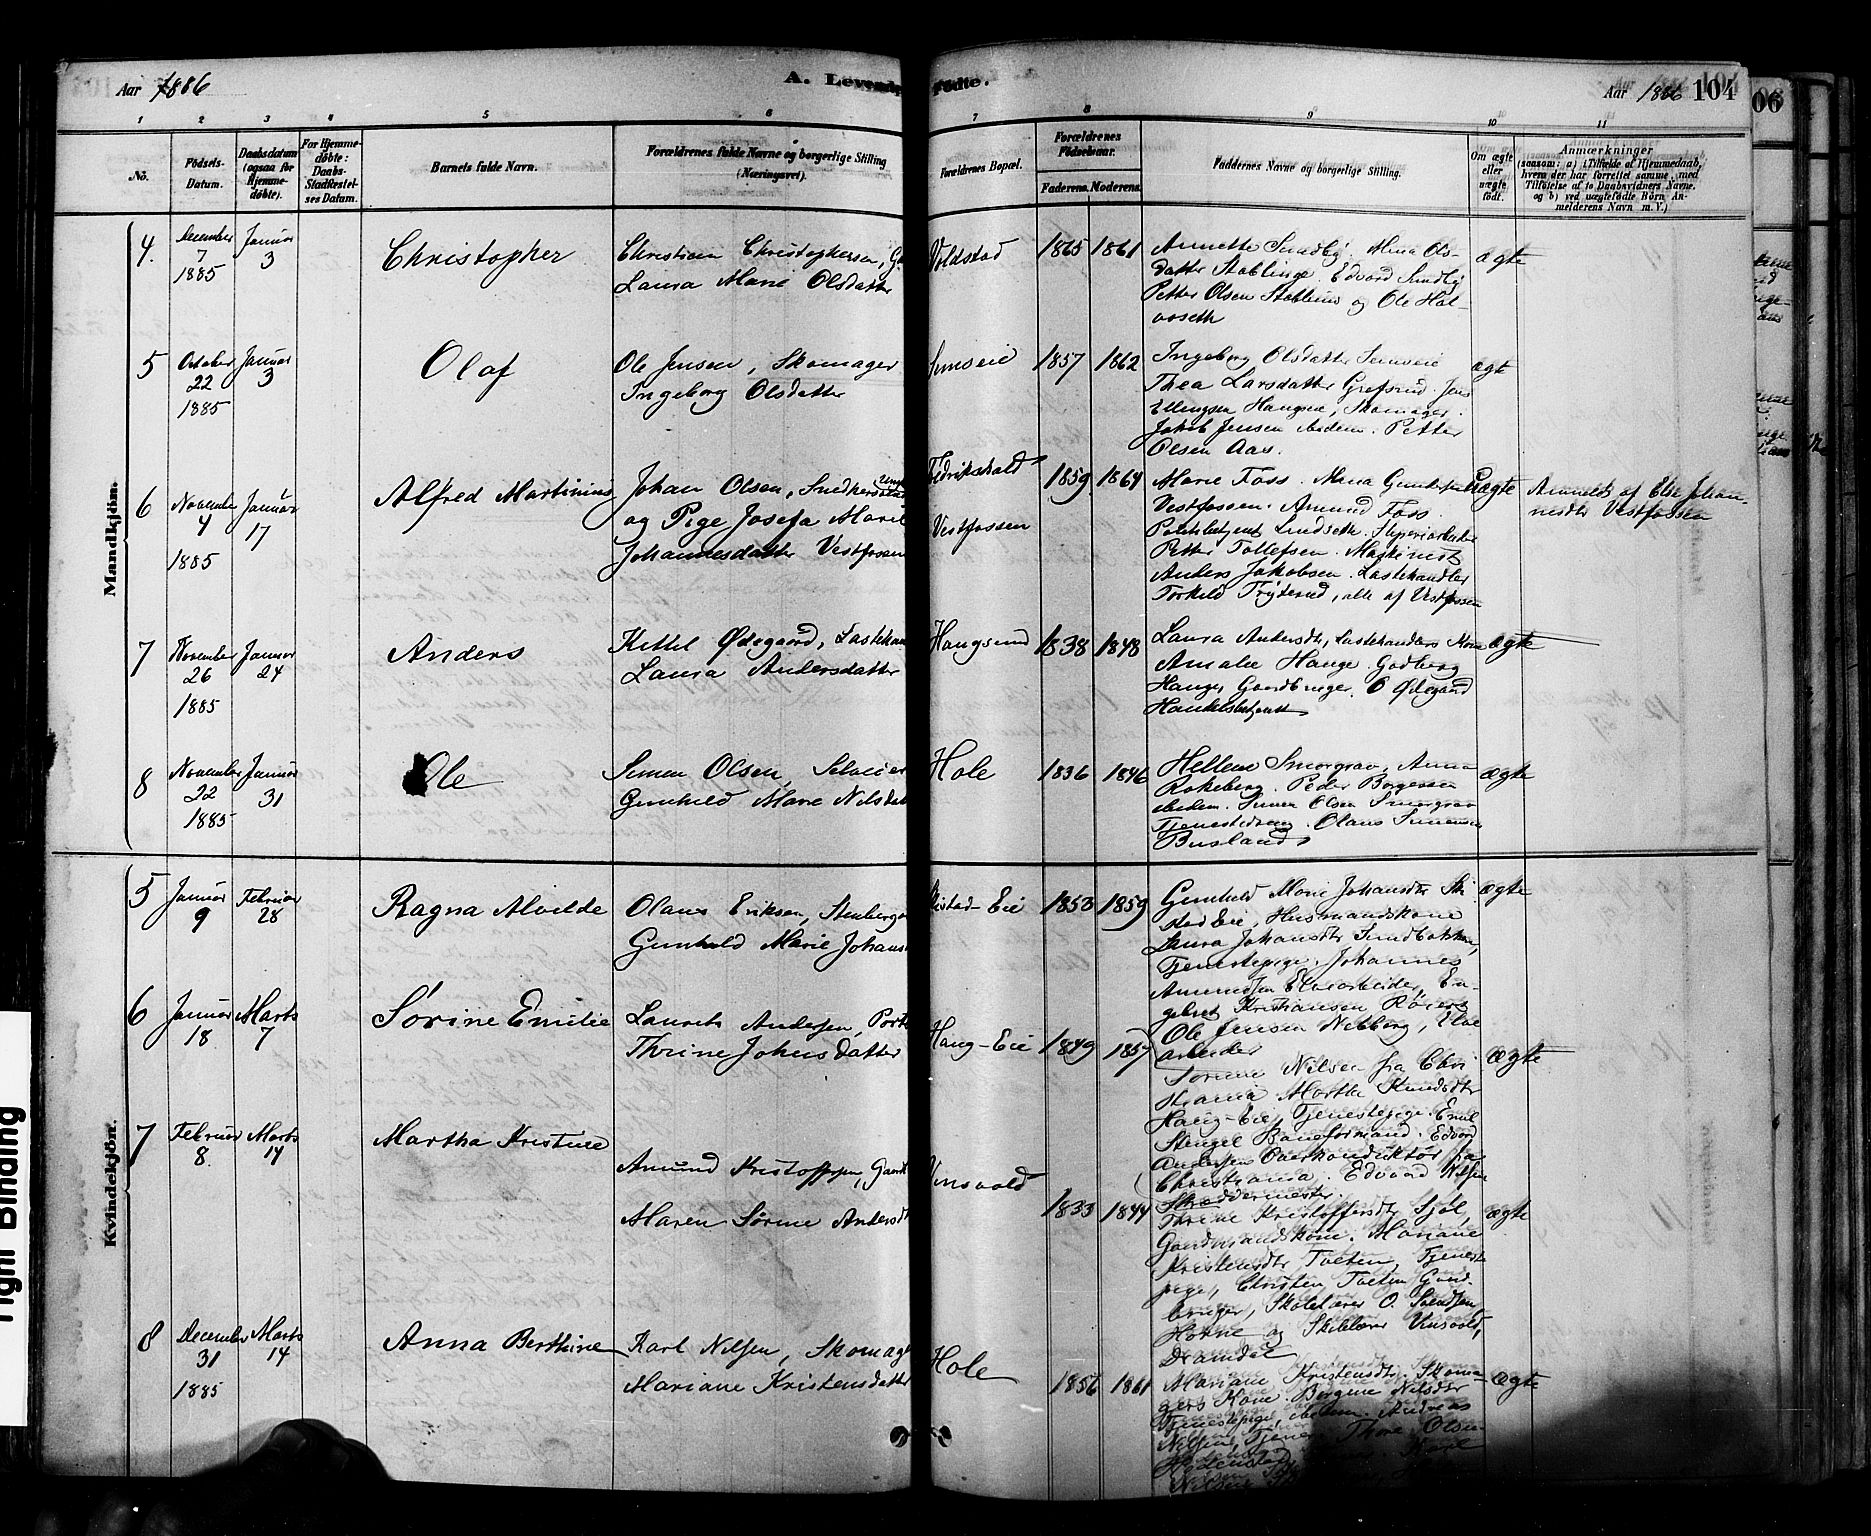 Aar 1886
A. Levende
fødte.
Aar 1886 104
06
1 2 3 4 5 6 7 8 9 10 11
No.
Fødsels-
Datum.
Daabsdatum
(ogsaa for
Hjemme-
døbte).
For Hjemme-
døbte:
Daabs-
Stadfæstel-
ses Datum.
Barnets fulde Navn.
Forældrenes fulde Navne og borgerlige Stilling
(Næringsvei).
Forældrenes Bopæl.
Forældrenes
Fødselsaar.
Faderens. Moderens.
Faddernes Navne og borgerlige Stilling.
Om ægte
eller
uægte
født.
Anmærkninger
(saasom: a) i Tilfælde af Hjemmedaab,
hvem der har forrettet samme, med
Tilføielse af to Daabsvidners Navne,
og b) ved uægtefødte Børn An-
melderens Navn m. V.)
Mandkjøn.
4.
December
7
1885
Januar
3
Christopher
Christian Christophersen,
Laura Marie Olsdatter
Voldstad
1865 1861
Annette Sundby. Anna Ols-
datter Stablinge Edvard Sundby
Petter Olsen Stablins og Ole Hol-
voseth
ægte
5
October
22
1885
Januar
3
Olaf
Ole Jensen, Skomager
Ingeborg Olsdatter
Semseie
1857 1862
Ingeborg Olsdatter Semseie
Thea Larsdatter Grefsrud. Jens
Ellingsen Haugsen, Skomager.
Jakob Jensen ibidem. Petter
Olsen Aas.
ægt
6
November
4
1885
Januar
17
Alfred Martinius
Johan Olsen, Snedkersvend
og Pige Josefa Marie
Johannesdatter Vestfossen
Fredrikshald
Vestfossen
1859 1864
Marie Foss. Anna
Vestfossen. Amund Foss
Politibetjent Lindseth. Sliperiarbeider
Petter Tollefsen. Maskinist
Anders Jakobsen. Lastehandler
Torkild Fryterud, alle af Vestfossen
Uægte
Anmeldt af Else Johan-
nesdtr Vestfossen
7
November
26
1885
Januar
24
Anders
Kittel Ødegaard, Lastehan
Laura Andersdatter
Haugsund
1838 1848
Laura Andersdtr, Lastehandlers Kone
Amalie Hauge. Gudberg
Hauges Gaardbruger. O Ødegaard
Handelsbetjent
ægte
8
November
22
1885
Januar
31
Ole
Simen Olsen, Selveier
Gunhild Marie Nilsdat
Hole
1836 1846
Hellene Smørgrav, Anna
Rokeberg. Peder Borgersen
ibidem. Simen Olsen Smørgrav
Tjenestedreng. Olaus Simensen
Busland
ægte
Kvindekjøn.
5
Januar
9
Februar
28
Ragna Alvilde
Olaus Eriksen, Stenberg
Gunhild Marie Johans
Skistad-Eie
1853 1859
Gunhild Marie Johansdtr Ski
stad Eie, Husmandskone
Laura Johansdtr Sundbakken,
Tjenestepige. Johannes
Amundsen Elvearbeider, En-
gebret Kristiansen Røieng
Ole Jensen Nebberg, Elve
arbeider
ægte
6
Januar
18
Marts
7
Sørine Emilie
Laurits Andersen, Port
Thrine Johnsdatter
Haug-Eie
1849 1857
Sørine Nilsen fra Chri
stiania Marthe Knudsdtr
Haug-Eie, Tjenestepige. Emil
Stengel Baneformand. Edvard
Andersen Overkonduktør fra
Christiania. Edvard Nilsen
Skreddermester.
ægte
7
Februar
8
Marts
14
Martha Kristine
Amund Kristoffsen, Gaardb
Maren Sørine Andersdt
Vinsvold
1833 1844
Thrine Kristoffersdtr Sjøl,
Gaardmandskone. Mariane
Kristensdtr Toeten, Tjeneste
pige, Christen Toeten Gaard-
bruger, Skolelærer O. Svendsen,
Horne og Skilelærer Vinsvold,
Dramdal
ægte
8
December
31
1885
Marts
14
Anna Berthine
Karl Nilsen, Skomag
Mariane Kristensdatter
Hole
1856 1861
Mariane Kristensdtr. Skoma-
gers Kone Bergine Nilsdtr
Tjenestepige, ibidem. Andreas
Nilsen, Tjener Thore Olsen
ægte
Tight Binding